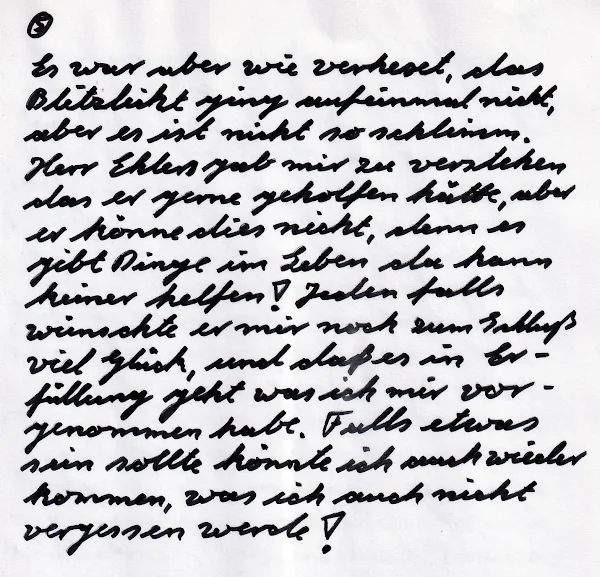 5
Es war aber wie verhext, das
Blitzlicht ging aufeinmal nicht,
aber es ist nicht so schlimm.
Herr Ehlers gab mir zu verstehen
das er gerne geholfen hätte, aber
er könne dies nicht, denn es
gibt Dinge im Leben da kann
keiner helfen! Jeden falls
wünschte er mir noch zum Schluß
viel Glück, und daß es in Er-
füllung geht was ich mir vor-
genommen habe. Falls etwas
sein sollte könnte ich auch wieder
kommen, was ich auch nicht
vergessen werde!